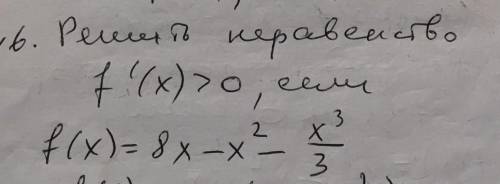 6. Решить неравенство
f'(x)>0, если
f(x)= 8x-x²- x³/3